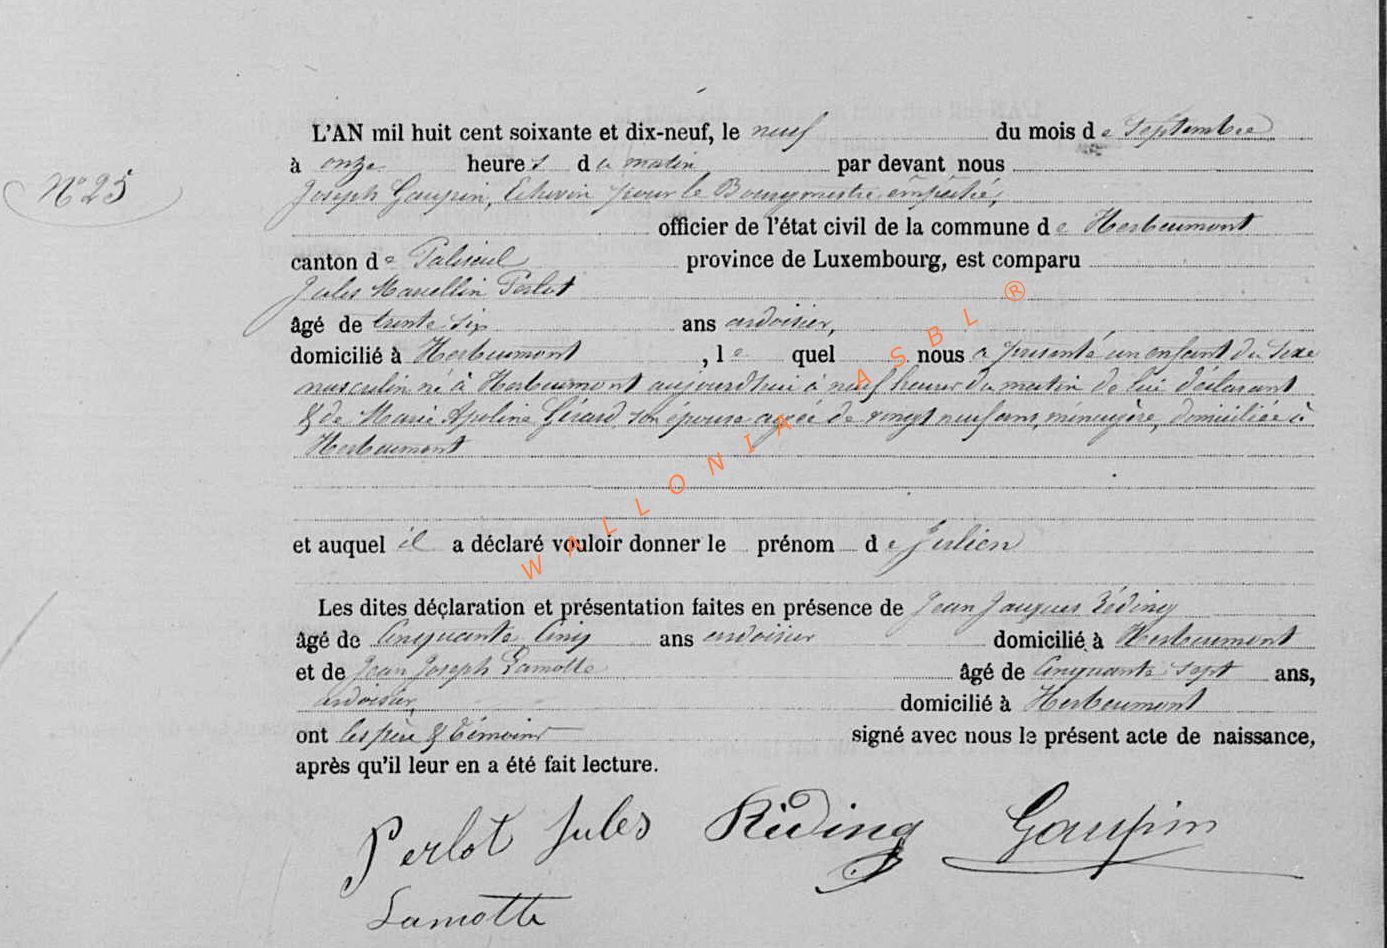 L'AN mil huit cent soixante et dix-neuf, le neuf du mois de Septembre
à onze heures du matin par devant nous
N° 25
Joseph Gaupin, Echevin pour le Bourgmestre empêché,
officier de l'état civil de la commune de Herbeumont
canton de Paliseul province de Luxembourg, est comparu
Jules Marcellin Perlot
âgé de trente six ans ardoisier,
domicilié à Herbeumont, lequel nous a présenté un enfant du sexe
masculin né à Herbeumont aujourd'hui à neuf heures du matin de lui déclarant
& de Marie Apoline Gérard, son épouse agée de vingt neuf ans, ménagère, domiciliée à
Herbeumont
et auquel il a déclaré vouloir donner le prénom de Julien
Les dites déclaration et présentation faites en présence de Jean Jacques Réding
âgé de Cinquante Cinq ans ardoisier domicilié à Herbeumont
et de Jean Joseph Lamotte âgé de Cinquante sept ans,
ardoisier, domicilié à Herbeumont
ont les père & témoins signé avec nous le présent acte de naissance,
après qu'il leur en a été fait lecture.
Perlot Jules Réding Gaupin
Lamotte
WALLONIA ASBL ®